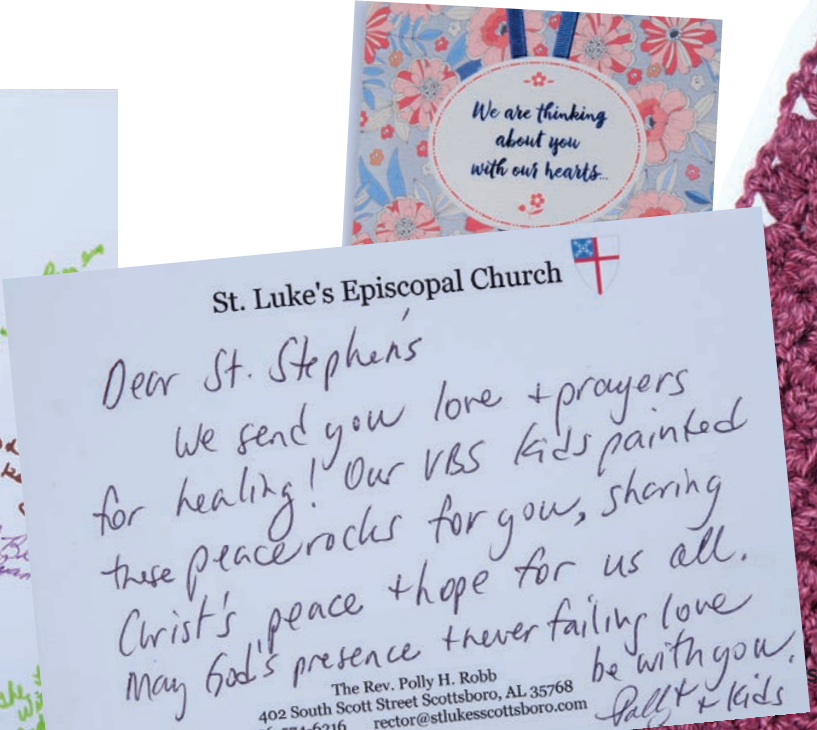 We are thinking
about you
with our hearts...
St. Luke's Episcopal Church
Dear St. Stephen's
We send you love + prayers
for healing! Our VBS kids painted
these peace rocks for you, sharing
Christ's peace + hope for us all.
May God's presence + never failing love
be with you.
The Rev. Polly H. Robb
402 South Scott Street Scottsboro, AL 35768
574-6216 rector@stlukesscottsboro.com
+ kids